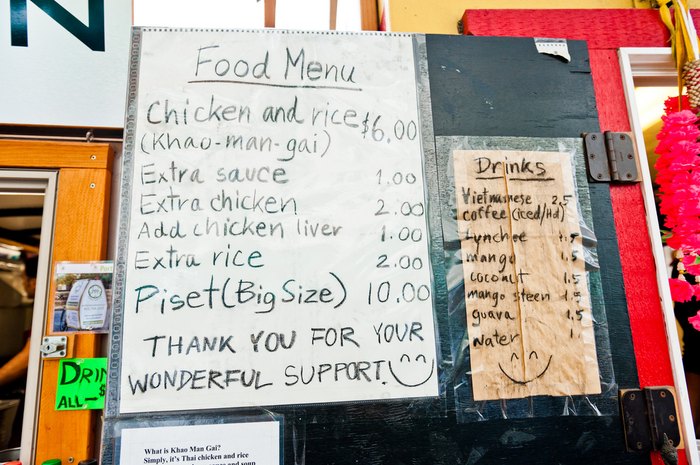 N
Food Menu
Chicken and rice $6.00
(Khao-man-gai)
Extra sauce 1.00
Extra chicken 2.00
Add chicken liver 1.00
Extra rice 2.00
Piset (Big Size) 10.00
THANK YOU FOR YOUR
WONDERFUL SUPPORT!
Drinks
Vietnamese 2.5
coffee (iced/Hd)
Lynchee 1.5
mango 1.5
coconut 1.5
mango steen 1.5
guava 1.5
water 1
DRIN
ALL—$
What is Khao Man Gai?
Simply, it's Thai chicken and rice